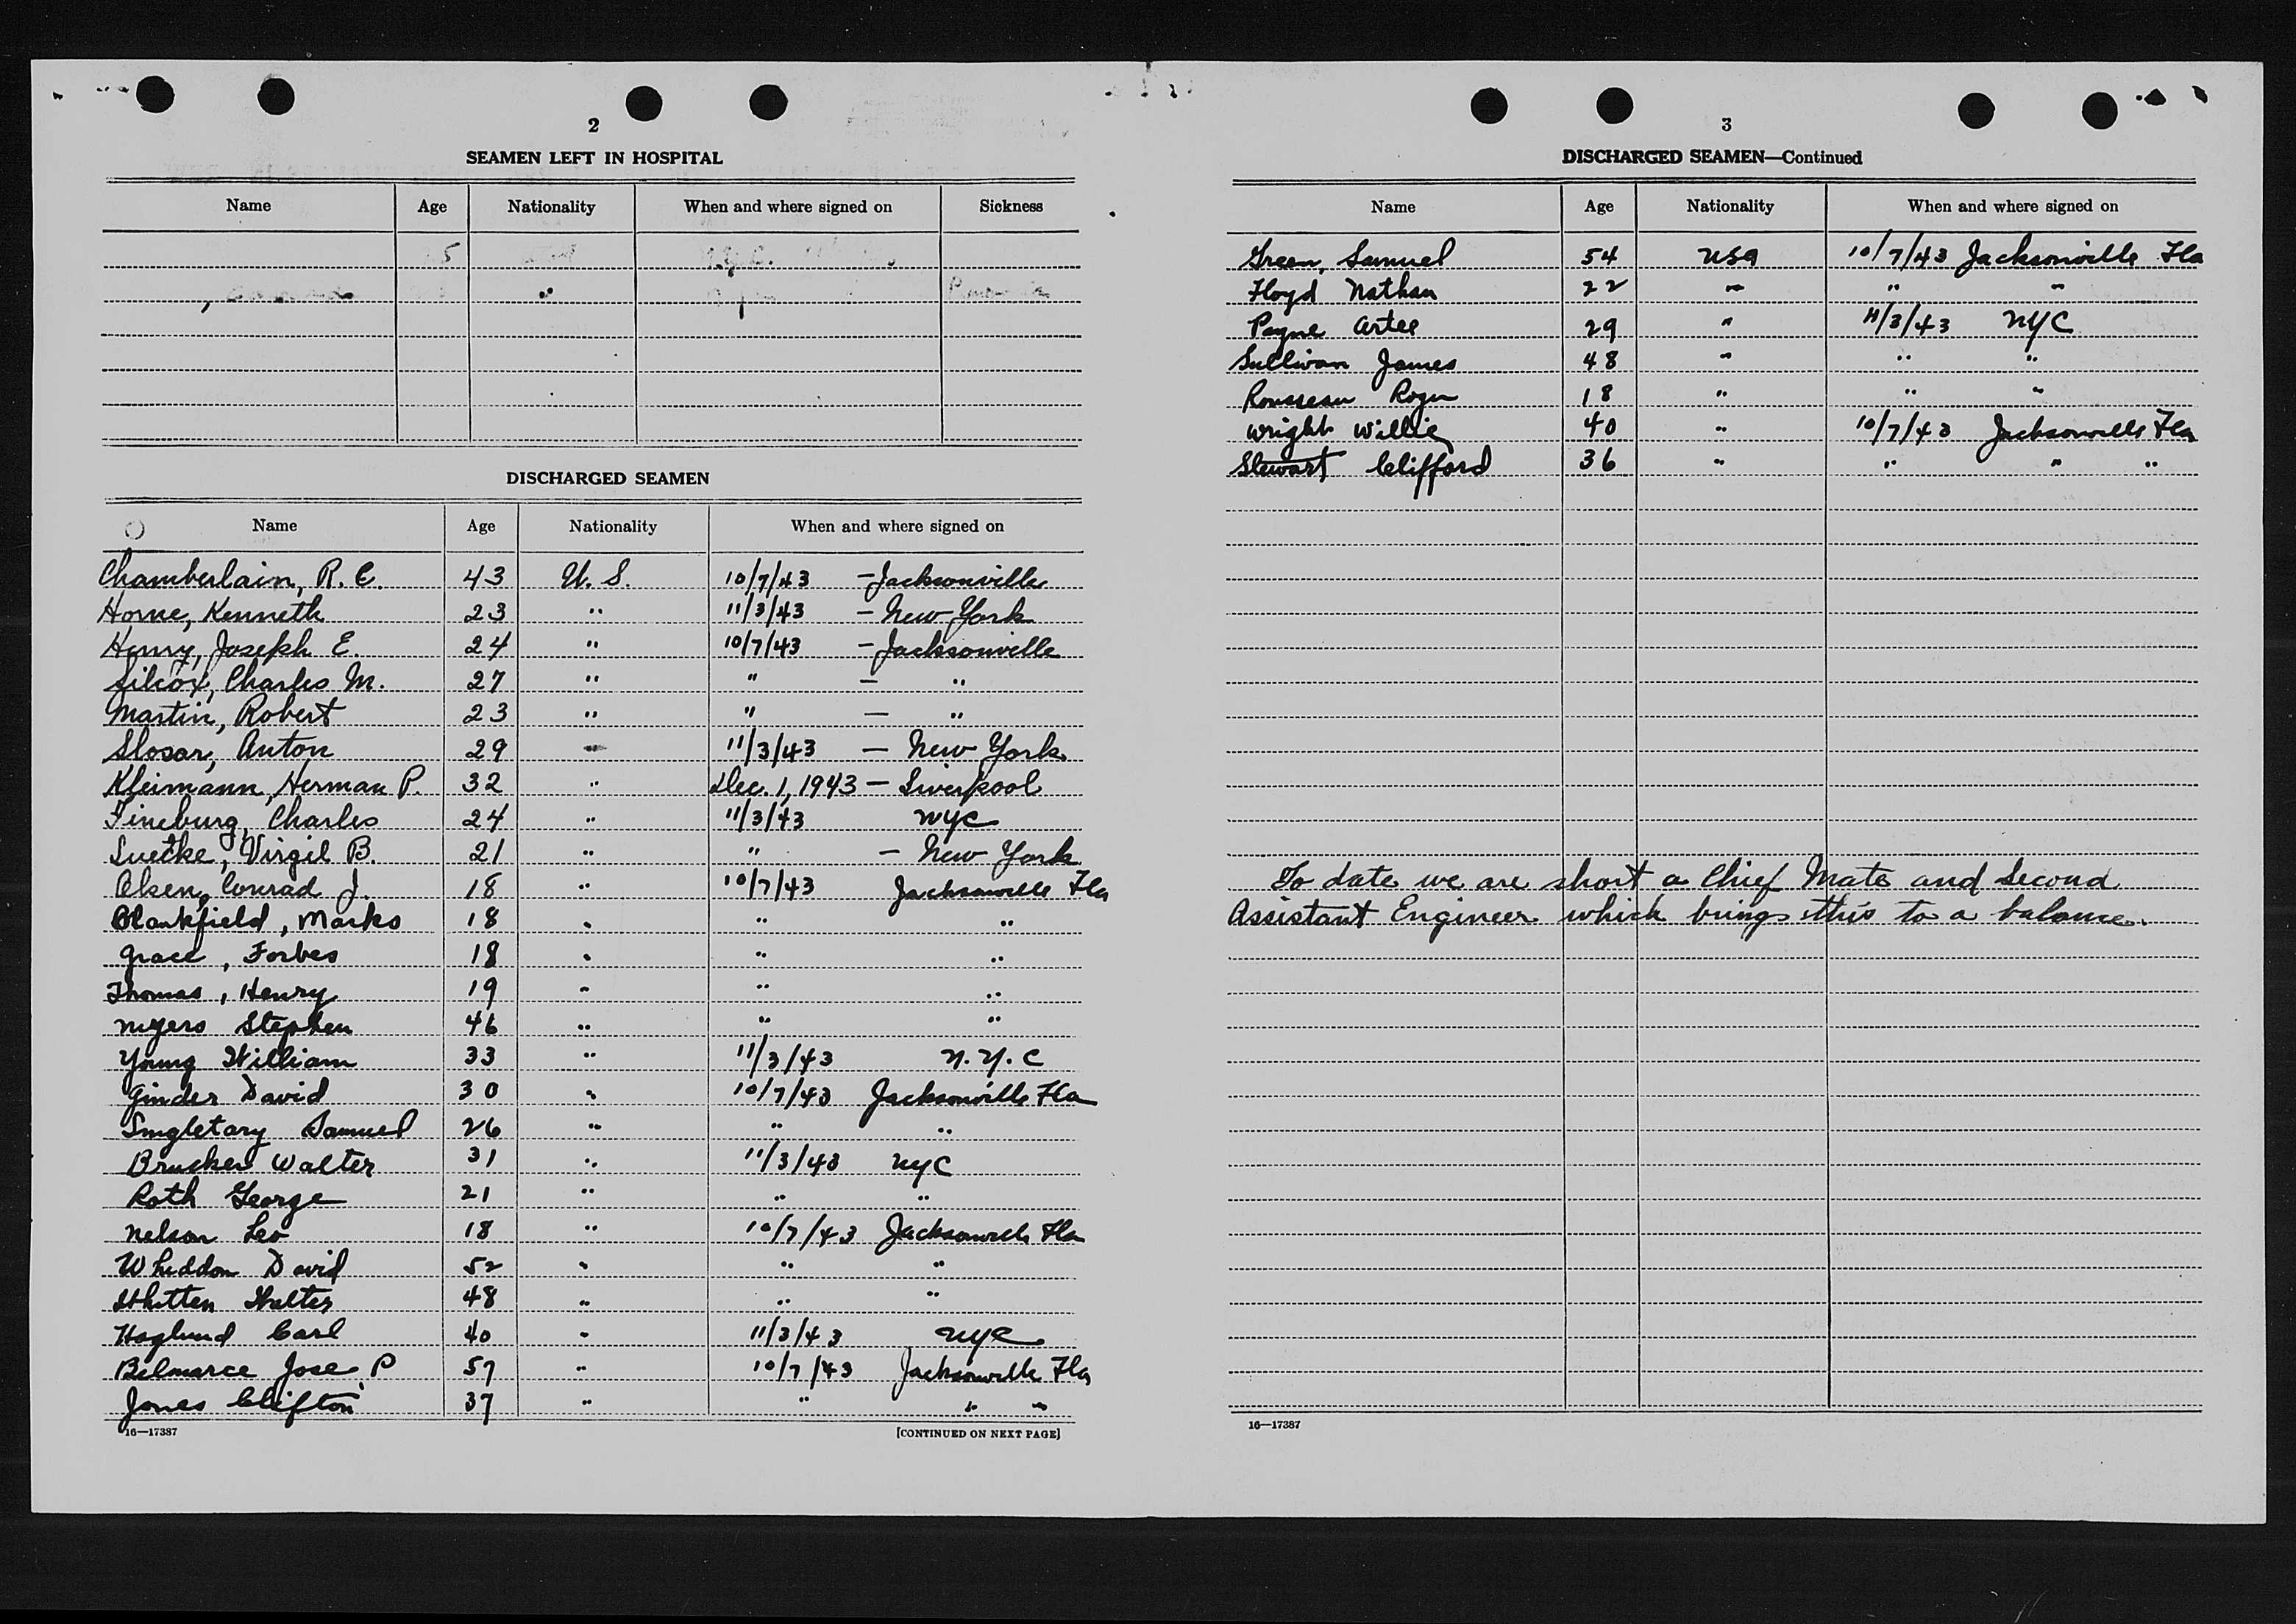 2
SEAMEN LEFT IN HOSPITAL
Name Age Nationality When and where signed on Sickness
DISCHARGED SEAMEN
Name Age Nationality When and where signed on
Chamberlain, R. C. 43 U. S. 10/7/43 – Jacksonville
Horne, Kenneth 23 " 11/3/43 – New York
Henry, Joseph E. 24 " 10/7/43 – Jacksonville
Silcox, Charles M. 27 " " – "
Martin, Robert 23 " " – "
Slosar, Anton 29 " 11/3/43 – New York
Kleimann, Herman P. 32 " Dec. 1, 1943 – Liverpool
Fineburg, Charles 24 " 11/3/43 NYC
Luetke, Virgil B. 21 " " – New York
Olsen, Conrad J. 18 " 10/7/43 Jacksonville Fla
Blankfield, Marks 18 " " "
Grace, Forbes 18 " " "
Thomas, Henry 19 " " "
Myers Stephen 46 " " "
Young William 33 " 11/3/43 N.Y.C
Ginder David 30 " 10/7/43 Jacksonville Fla
Singletary Samuel 26 " " "
Brucker Walter 31 " 11/3/43 NYC
Roth George 21 " " "
Nelson Leo 18 " 10/7/43 Jacksonville Fla
Wheddon David 52 " " "
Whitten Walter 48 " " "
Haglund Carl 40 " 11/3/43 NYC
Belmarce Jose P 57 " 10/7/43 Jacksonville Fla
Jones Clifton 37 " " " "
16—17387 [CONTINUED ON NEXT PAGE]
3
DISCHARGED SEAMEN—Continued
Name Age Nationality When and where signed on
Green, Samuel 54 USA 10/7/43 Jacksonville Fla
Floyd Nathan 22 " " "
Payne Artee 29 " 11/3/43 NYC
Sullivan James 48 " " "
Rousseau Roger 18 " " "
Wright Willie 40 " 10/7/43 Jacksonville Fla
Stewart Clifford 36 " " " "
To date we are short a Chief Mate and Second
Assistant Engineer which brings this to a balance.
16—17387